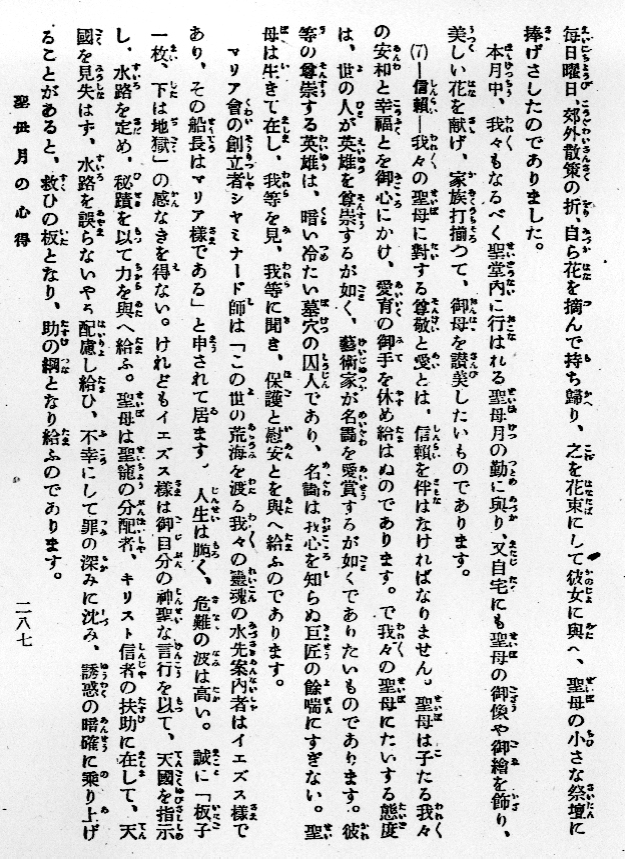 毎日曜日、郊外散策の折、自ら花を摘んで持ち歸り、之を花束にして彼女に與へ、聖母の小さな祭壇に
捧げさしたのでありました。
本月中、我々もなるべく聖堂内に行はれる聖母月の勤に與り、又自宅にも聖母の御像や御繪を飾り、
美しい花を献げ、家族打揃つて、御母を讃美したいものであります。
(7)―信頼―我々の聖母に對する尊敬と愛とは、信頼を伴はなければなりません。聖母は子たる我々
の安和と幸福とを御心にかけ、愛育の御手を休め給はぬのであります。で我々の聖母にたいする態度
は、世の人が英雄を尊崇するが如く、藝術家が名畵を愛賞するが如くでありたいものであります。彼
等の尊崇する英雄は、暗い冷たい墓穴の囚人であり、名畵は我心を知らぬ巨匠の餘喘にすぎない。聖
母は生きて在し、我等を見、我等に聞き、保護と慰安とを與へ給ふのであります。
マリア會の創立者シヤミナード師は「この世の荒海を渡る我々の靈魂の水先案内者はイエズス様で
あり、その船長はマリア様である」と申されて居ます。人生は脆く、危難の波は高い。誠に「板子
一枚、下は地獄」の感なきを得ない。けれどもイエズス様は御自分の神聖な言行を以て、天國を指示
し、水路を定め、秘蹟を以て力を與へ給ふ。聖母は聖寵の分配者、キリスト信者の扶助に在して、天
國を見失はず、水路を誤らないやう配慮し給ひ、不幸にして罪の深みに沈み、誘惑の暗確に乗り上げ
ることがあると、救ひの板となり、助の綱となり給ふのであります。
聖母月の心得
二八七